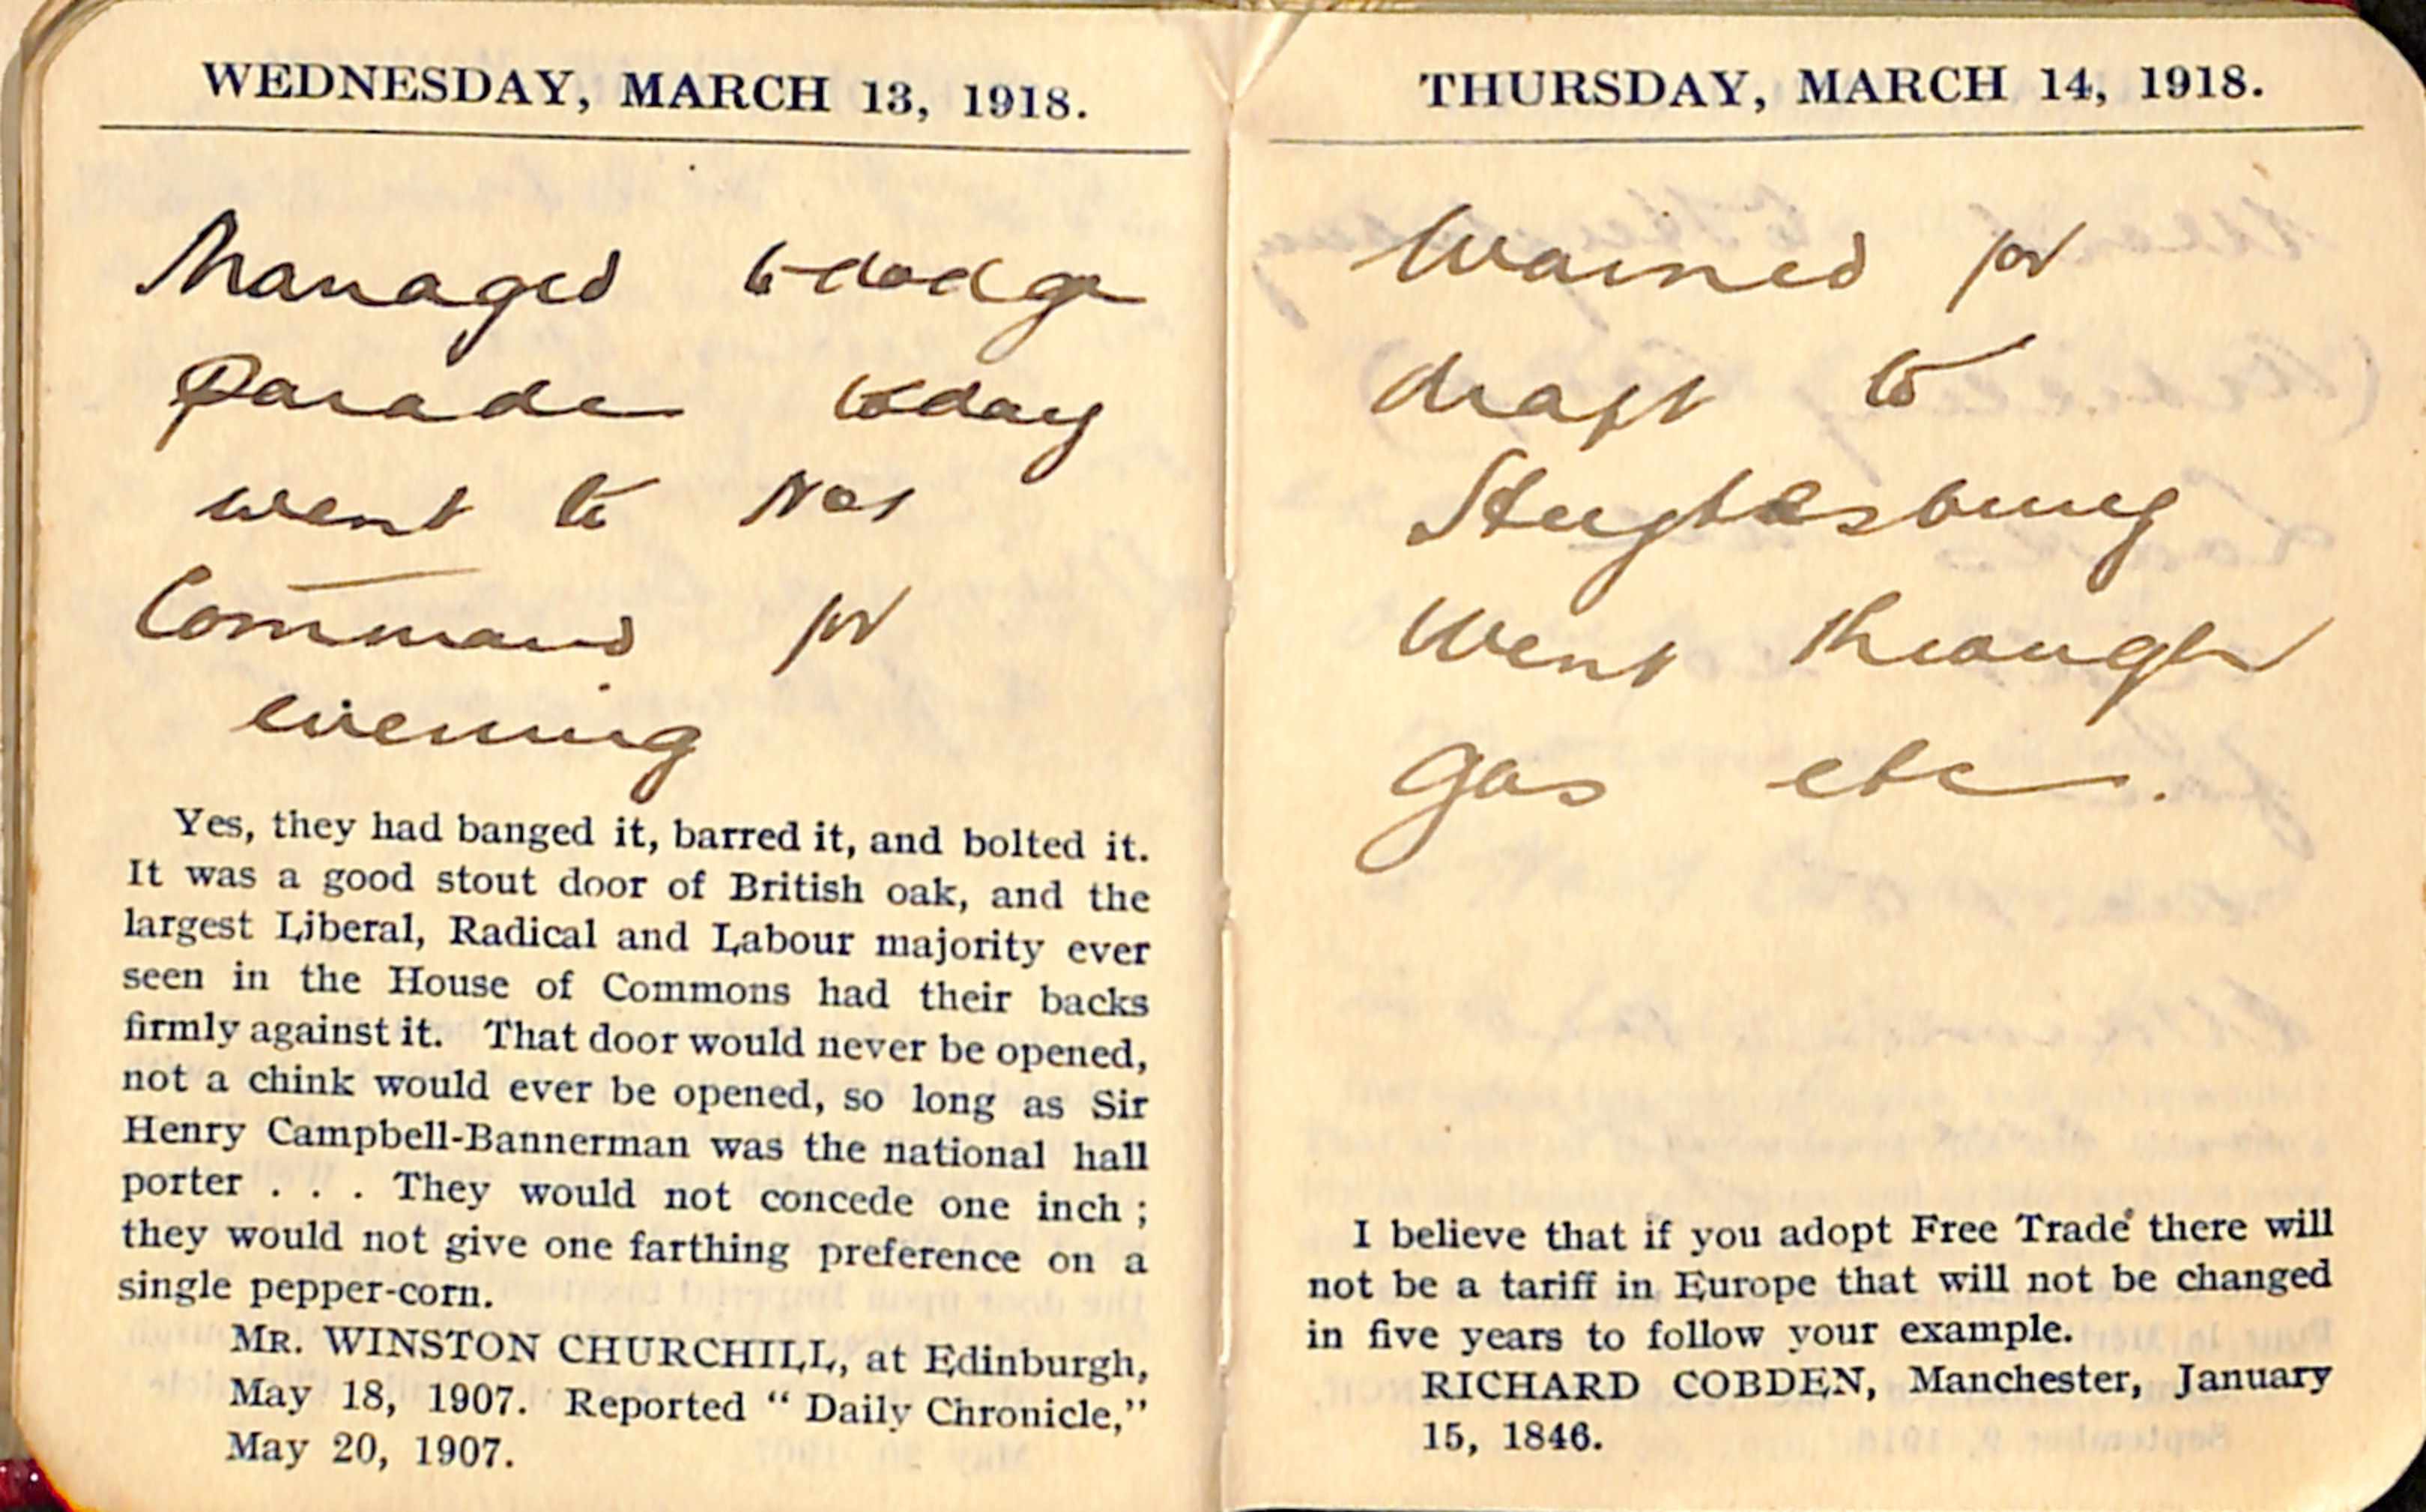 WEDNESDAY, MARCH 13, 1918.
Managed to dodge
Parade today
went to
Command for
evening
Yes, they had banged it, barred it, and bolted it.
It was a good stout door of British oak, and the
largest Liberal, Radical and Labour majority ever
seen in the House of Commons had their backs
firmly against it. That door would never be opened,
not a chink would ever be opened, so long as Sir
Henry Campbell-Bannerman was the national hall
porter . . . They would not concede one inch ;
they would not give one farthing preference on a
single pepper-corn.
MR. WINSTON CHURCHILL, at Edinburgh,
May 18, 1907. Reported “ Daily Chronicle,”
May 20, 1907.
THURSDAY, MARCH 14, 1918.
Warned for
draft to
Went through
gas etc.
I believe that if you adopt Free Trade there will
not be a tariff in Europe that will not be changed
in five years to follow your example.
RICHARD COBDEN, Manchester, January
15, 1846.